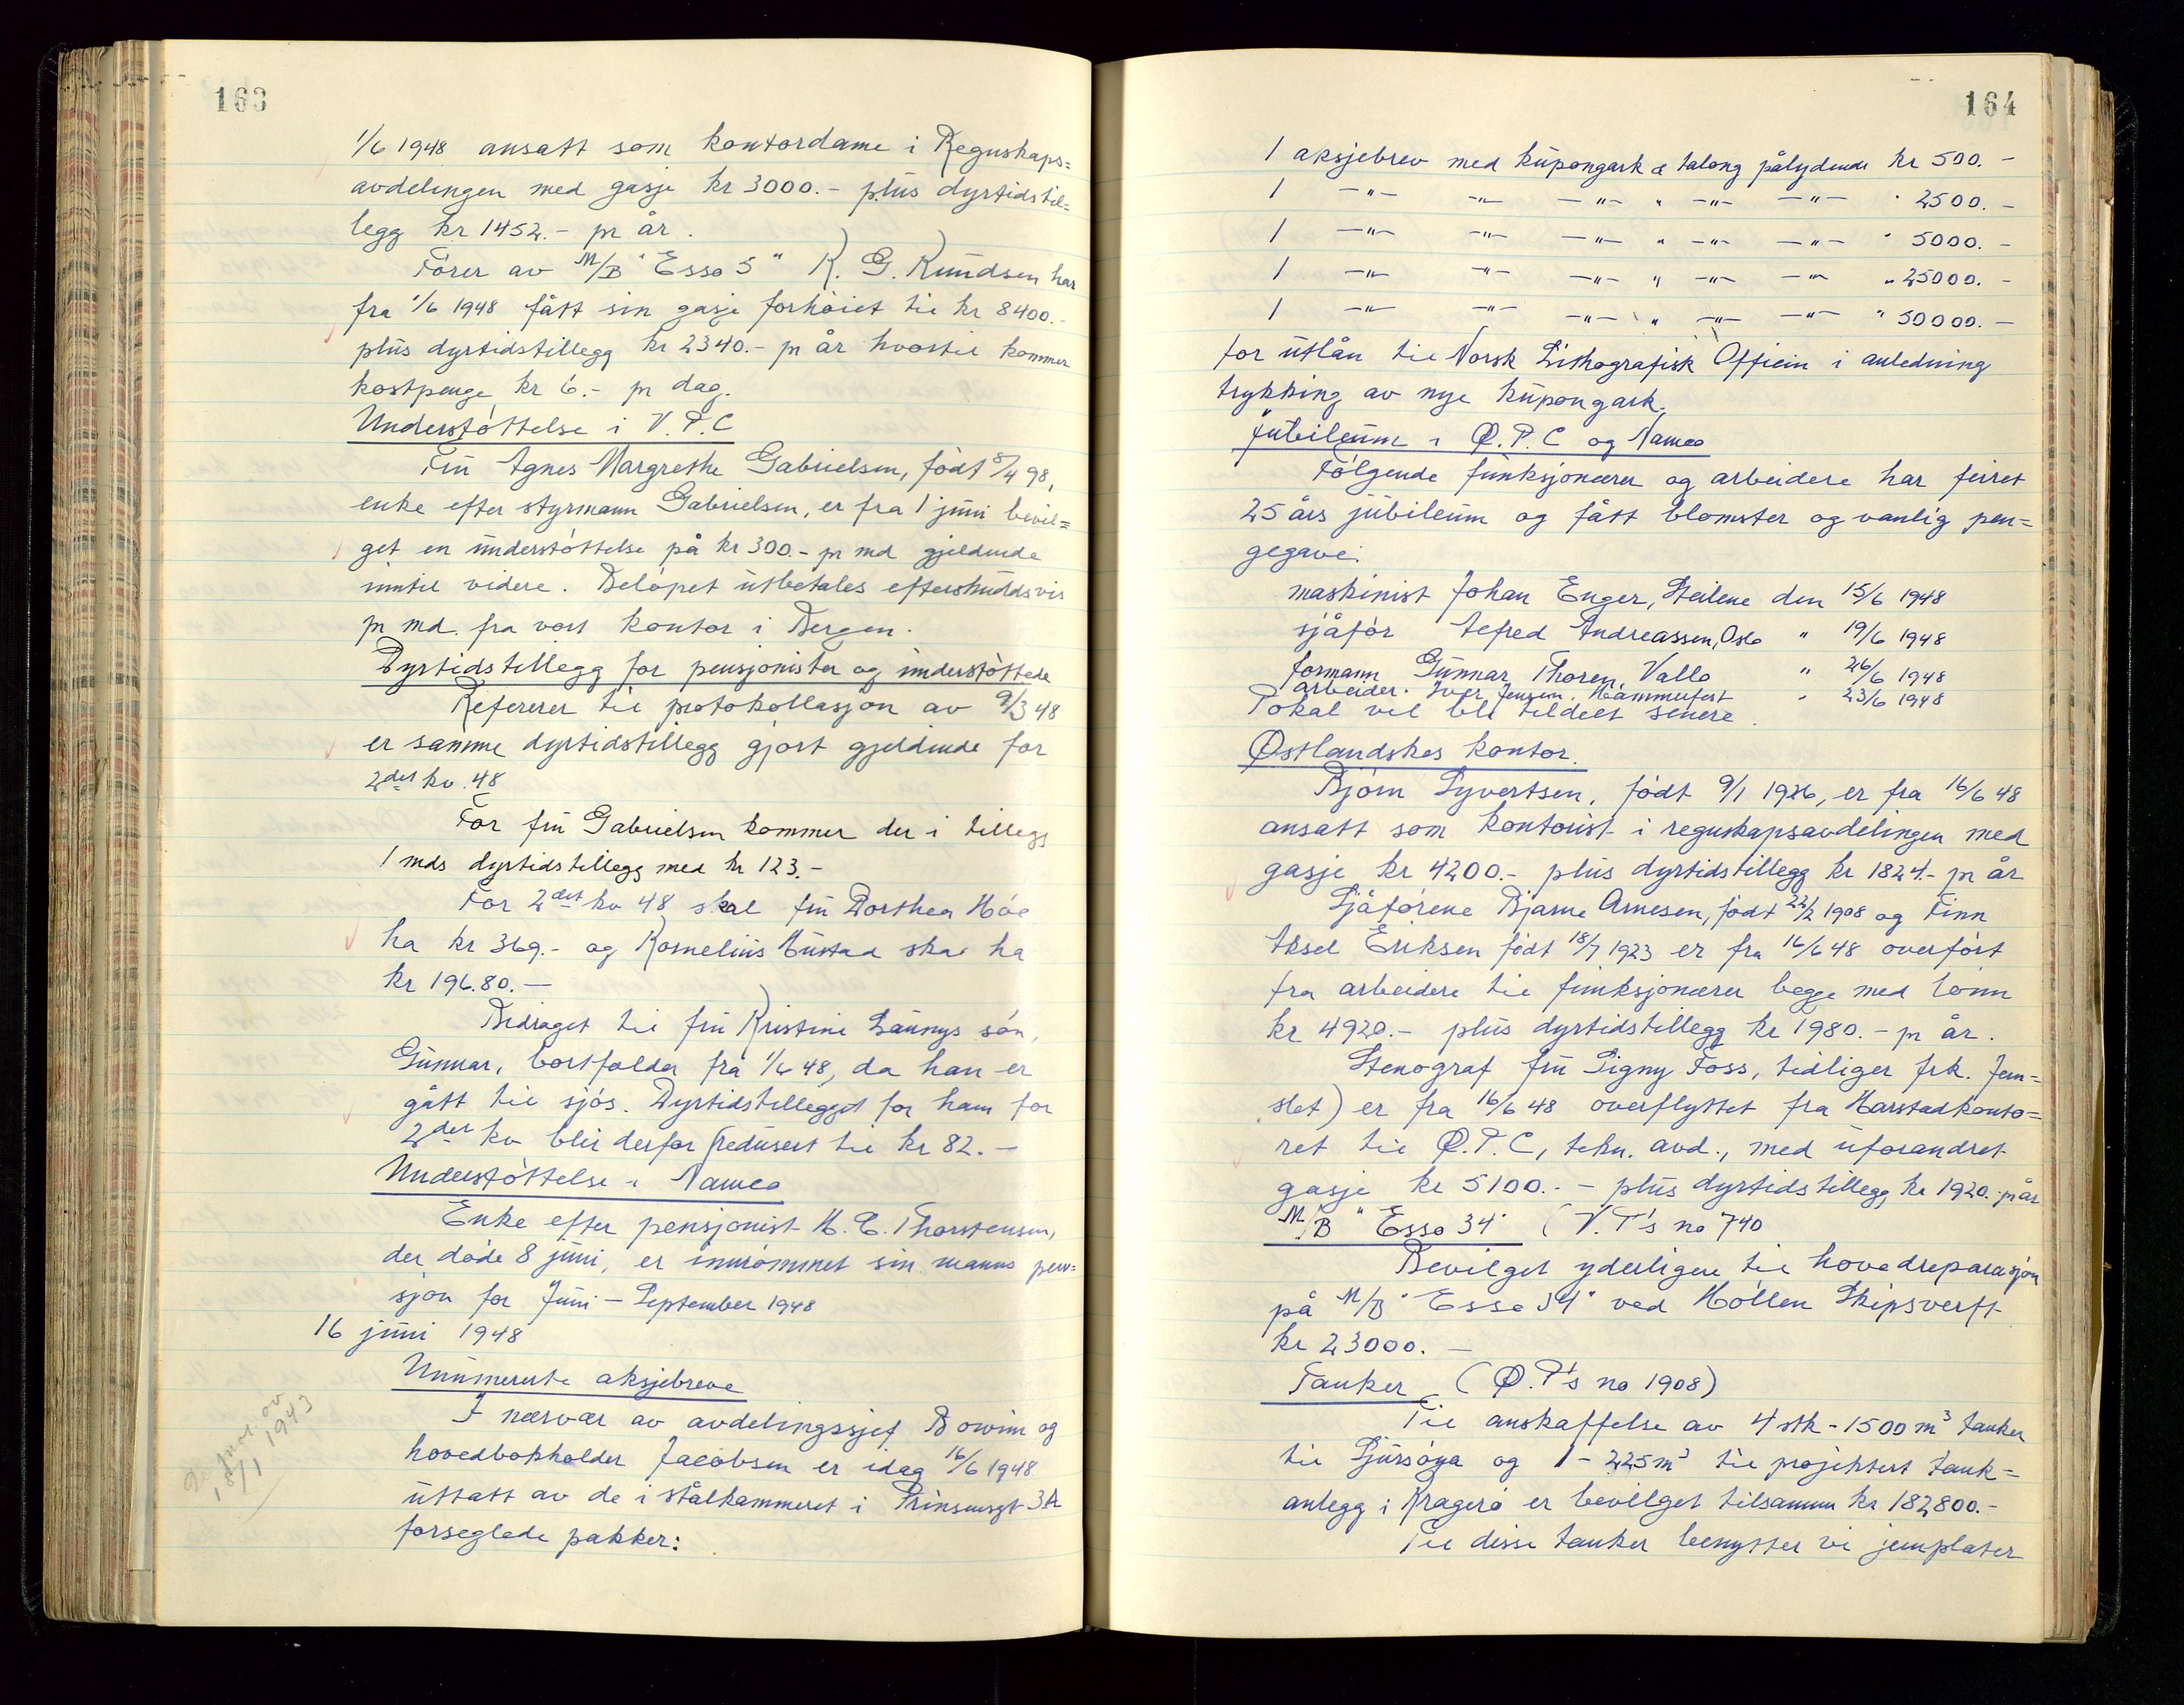 163
1/6 1948 ansatt som kontordame i Regnskaps=
avdelingen med gasje kr 3000.- plus dyrtidstil=
legg kr 1452.- pr år.
Fører av M/B "Esso 5" K. G. Knudsen har
fra 1/6 1948 fått sin gasje forhøiet til kr 8400.-
plus dyrtidstillegg kr 2340.- pr år hvortil kommer
kostpenge kr 6.- pr dag.
Understøttelse i V.P.C
Fru Agnes Margrethe Gabrielsen, født 8/4 98,
enke efter styrmann Gabrielsen, er fra 1 juni bevil=
get en understøttelse på kr 300.- pr md gjeldende
inntil videre. Beløpet utbetales efterskuddsvis
pr md. fra vort kontor i Bergen.
Dyrtidstillegg for pensjonister og understøttede
Refererer til protokollasjon av 9/3 48
er samme dyrtidstillegg gjort gjeldende for
2det kv. 48
For fru Gabrielsen kommer der i tillegg
1 mds dyrtidstillegg med kr 123.-
For 2det kv 48 skal fru Dorthea Høe
ha kr 369.- og Kornelius Bustad skal ha
kr 196.80.-
Bidraget til fru Kristine Launys søn,
Gunnar, bortfalder fra 1/6 48, da han er
gått til sjøs. Dyrtidstillegget for ham for
2det kv blir derfor redusert til kr 82.-
Understøttelse i Namco
Enke efter pensjonist H. C. Thorstensen,
der døde 8 juni, er innrømmet sin manns pen=
sjon for Juni - September 1948
16 juni 1948
Unummererte aksjebreve
I nærvær av avdelingssjef Bowim og
hovedbokholder Jacobsen er idag 16/6 1948
uttatt av de i stålkammeret i Prinsensgt 3A
forseglede pakker:
prot. av
18/1 1943
164
1 aksjebrev med kupongark & talong pålydende kr 500.-
1 -"- -"- -"- " -"- -"- " 2500.-
1 -"- -"- -"- " -"- -"- " 5000.-
1 -"- -"- -"- " -"- -"- " 25000.-
1 -"- -"- -"- " -"- -"- " 50000.-
for utlån til Norsk Lithografisk Officin i anledning
trykking av nye kupongark.
Jubileum i Ø.P.C og Namco
Følgende funksjonærer og arbeidere har feiret
25 års jubileum og fått blomster og vanlig pen=
gegave:
maskinist Johan Enger, Steilene den 15/6 1948
sjåfør Alfred Andreassen, Oslo " 19/6 1948
formann Gunnar Thoren, Vallø " 26/6 1948
arbeider Iver Jensen, Hammerfest " 23/6 1948
Pokal vil bli tildelt senere.
Østlandskes kontor.
Bjørn Syvertsen, født 9/1 1926, er fra 16/6 48
ansatt som kontorist i regnskapsavdelingen med
gasje kr 4200.- plus dyrtidstillegg kr 1824.- pr år
Sjåførene Bjarne Arnesen, født 22/2 1908 og Finn
Aksel Eriksen født 18/7 1923 er fra 16/6 48 overført
fra arbeidere til funksjonærer begge med lønn
kr 4920.- plus dyrtidstillegg kr 1980.- pr år.
Stenograf fru Signy Foss, tidliger frk. Jem=
slet) er fra 16/6 48 overflyttet fra Harstadkonto=
ret til Ø.P.C, tekn. avd., med uforandret
gasje kr 5100.- - plus dyrtidstillegg kr 1920.- pr år
M/B "Esso 34" (V.P's no 740
Bevilget yderligere til hovedreparasjon
på M/B "Esso 34" ved Høllen Skipsverft
kr 23000.-
Tanker (Ø.P's no 1908)
Til anskaffelse av 4 stk - 1500 m³ tanker
til Sjursøya og 1 - 225 m³ til projektert tank=
anlegg i Kragerø er bevilget tilsammen kr 182800.-
Til disse tanker benytter vi jernplater